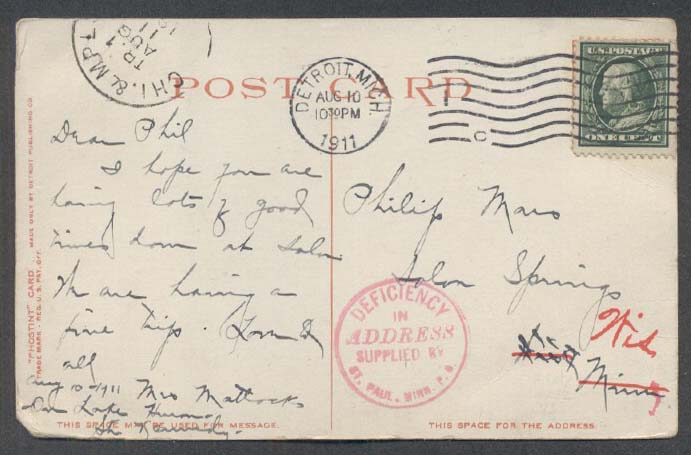 CHI. & M.P.L.
TR. 1
AUG
11
1911
POST CARD
DETROIT, MICH.
AUG 10
10 30 PM
1911
C
U.S. POSTAGE
ONE CENT
"PHOSTINT" CARD MADE ONLY BY DETROIT PUBLISHING CO.
TRADE MARK - REG. U.S. PAT. OFF.
Dear Phil
I hope you are
having lots of good
times down at Solon
We are having a
fine trip. Love to
all
Mrs Mattocks
Aug 10-1911
On Lake Huron-
THIS SPACE MAY BE USED FOR MESSAGE.
Philip Mars
Solon Springs
Wis
Minn
DEFICIENCY
IN
ADDRESS
SUPPLIED BY
ST. PAUL, MINN. P. O.
THIS SPACE FOR THE ADDRESS